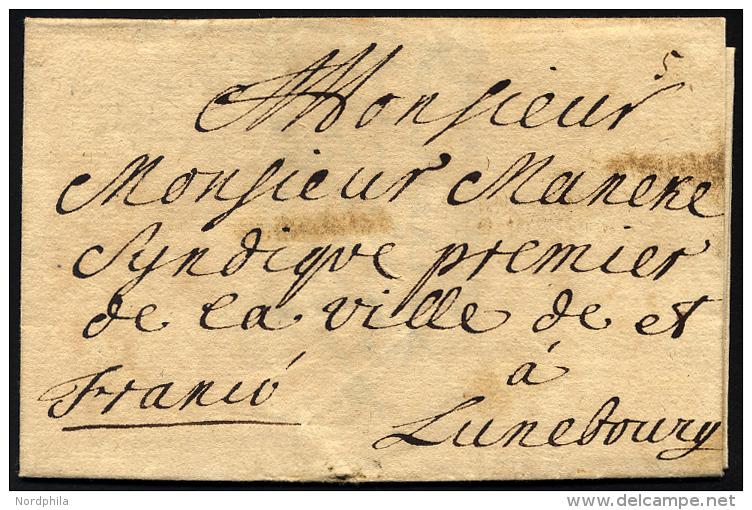 Monsieur
Monsieur Maneke
Syndique premier
de la ville de et
à
Francó
Lunebourg
Nordphila
delcampe.net